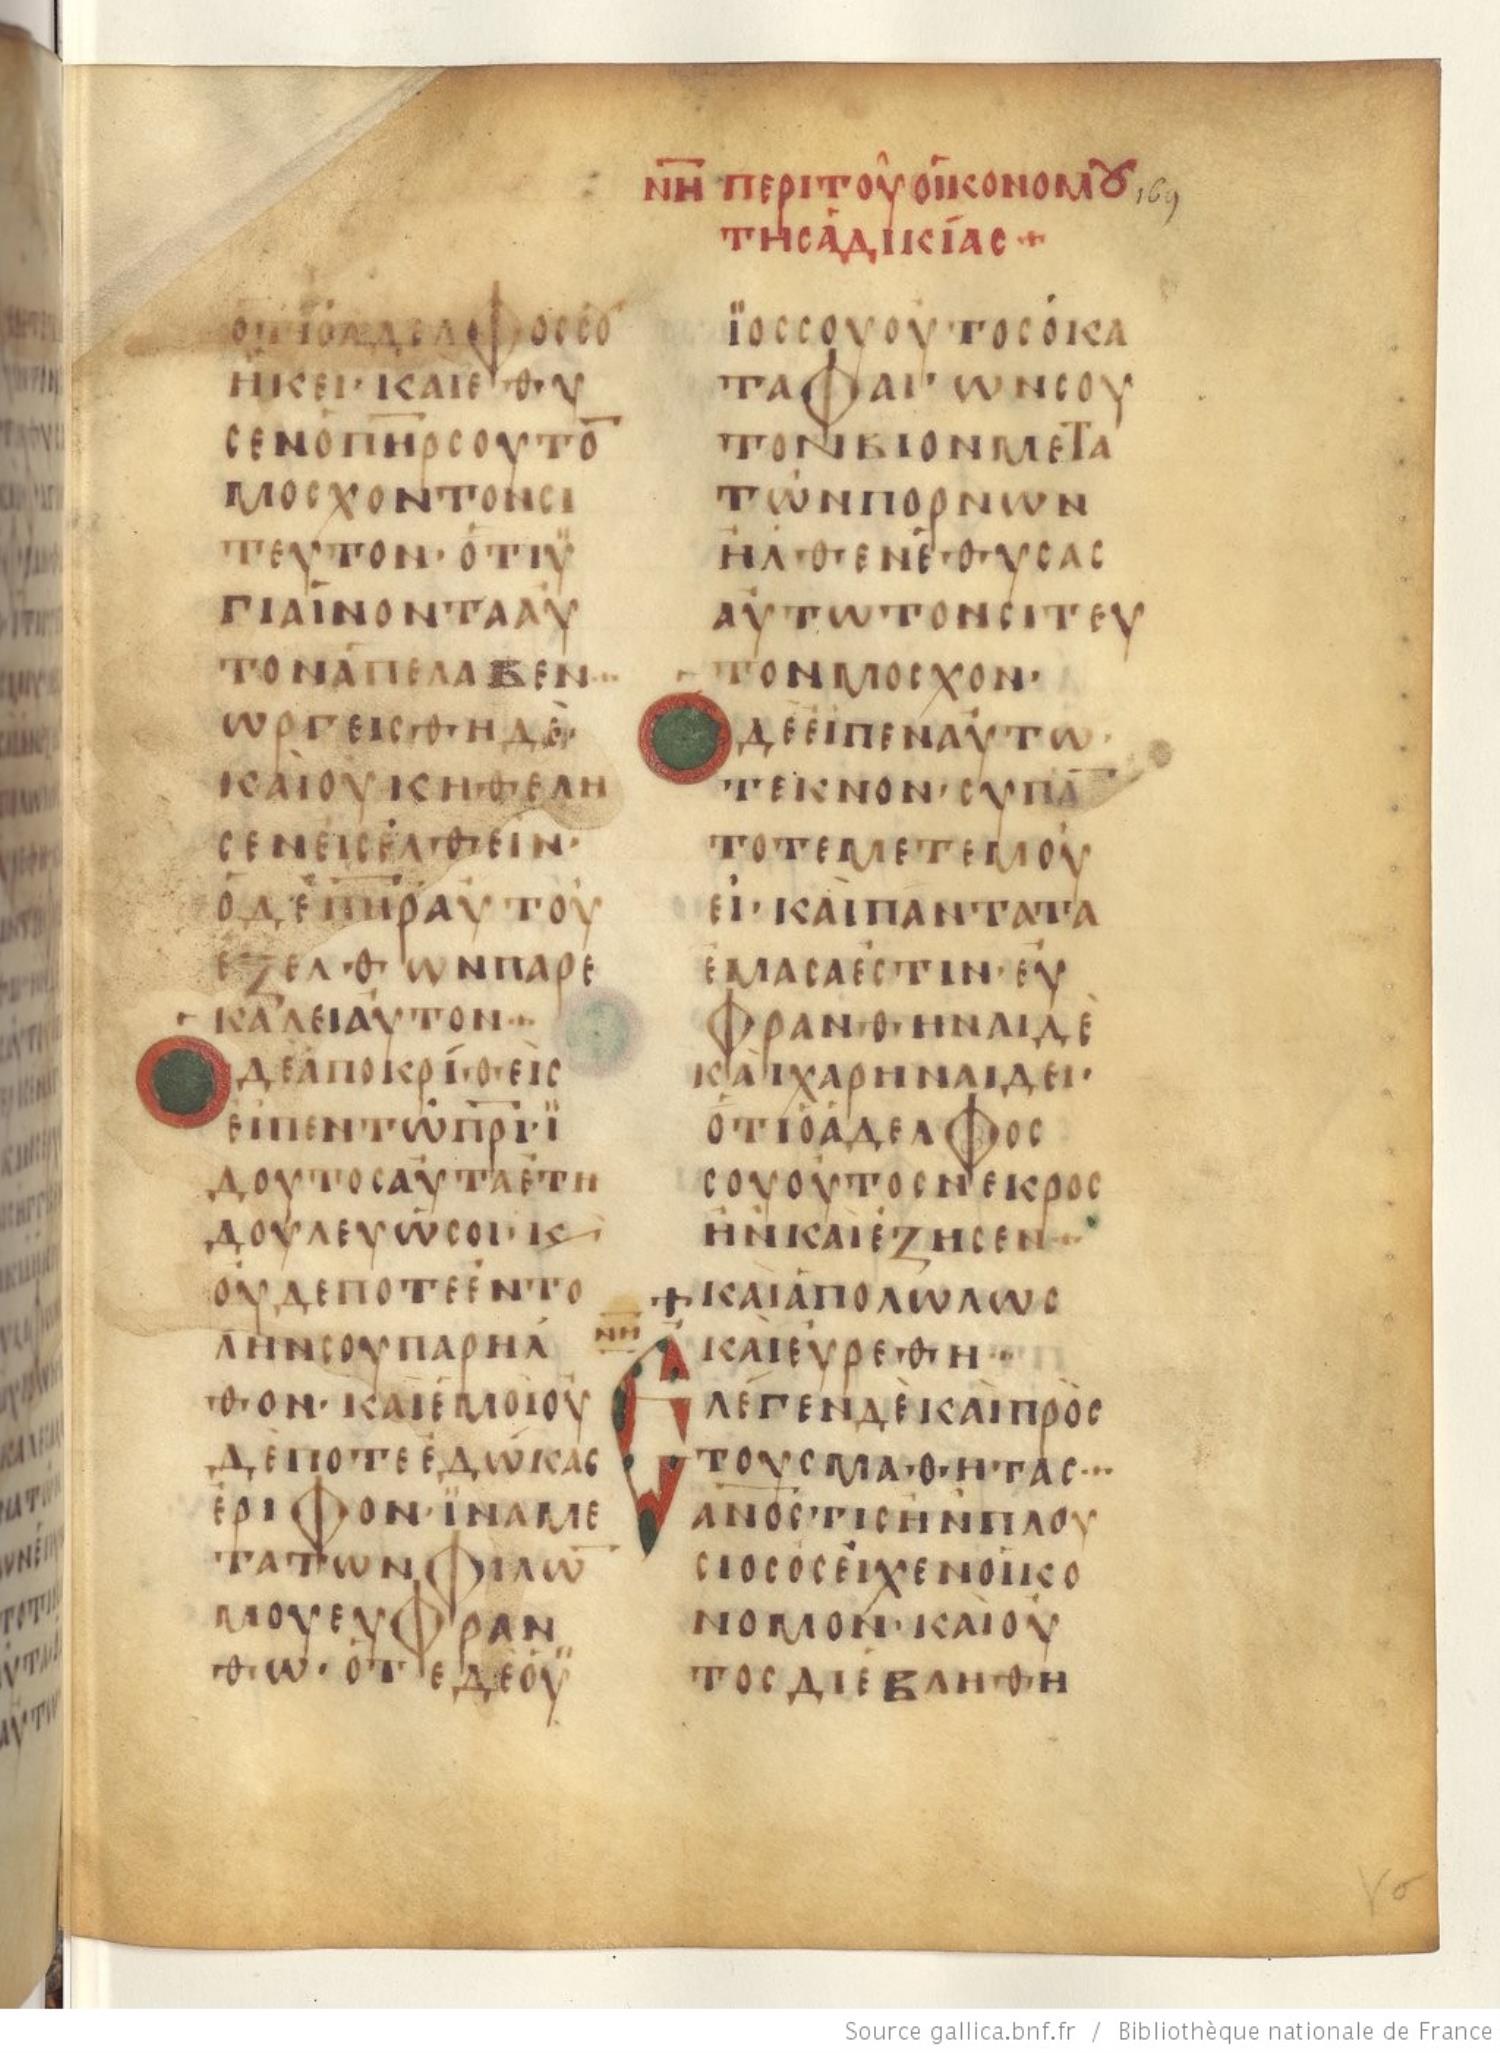 ΝΗ ΠΕΡΙΤΟΥΟΙΚΟΝΟΜȢ 169
ΤΗΣΑΔΙΚΙΑΣ +
ΟΤΙΟΑΔΕΛΦΟΣΣΟ
ΗΚΕΙ· ΚΑΙΕΘΥ
ΣΕΝΟΠΗΡΣΟΥΤΟ̅
ΜΟΣΧΟΝΤΟΝΣΙ
ΤΕΥΤΟΝ· ΟΤΙΫ
ΓΙΑΙΝΟΝΤΑΑΥ
ΤΟΝΑΠΕΛΑΒΕΝ··
ΩΡΓΕΙΣΘΗΔΕ·
ΚΑΙΟΥΚΗΘΕΛΗ
ΣΕΝΕΙΣΕΛΘΕΙΝ·
ΟΔΕΠ̅Η̅Ρ̅ΑΥΤΟΥ
ΕΞΕΛΘΩΝΠΑΡΕ
ΚΑΛΕΙΑΥΤΟΝ··
ΟΔΕΑΠΟΚΡΙΘΕΙΣ
ΕΙΠΕΝΤΩΠ̅Ρ̅Ι̅·Ϊ
ΔΟΥΤΟΣΑΥΤΑΕΤΗ
ΔΟΥΛΕΥΩΣΟΙ· Κ
ΟΥΔΕΠΟΤΕΕΝΤΟ
ΛΗΝΣΟΥΠΑΡΗΛ
ΘΟΝ· ΚΑΙΕΜΟΙΟΥ
ΔΕΠΟΤΕΕΔΩΚΑΣ
ΕΡΙΦΟΝ·ΪΝΑΜΕ
ΤΑΤΩΝΦΙΛΩ̅
ΜΟΥΕΥΦΡΑΝ
ΘΩ· ΟΤΕΔΕΟΫ
ΪΟΣΣΟΥΟΥΤΟΣΟΚΑ
ΤΑΦΑΓΩΝΣΟΥ
ΤΟΝΒΙΟΝΜΕΤΑ
ΤΩΝΠΟΡΝΩΝ
ΗΛΘΕΝΕΘΥΣΑΣ
ΑΥΤΩΤΟΝΣΙΤΕΥ
ΤΟΝΜΟΣΧΟΝ·
ΟΔΕΕΙΠΕΝΑΥΤΩ·
ΤΕΚΝΟΝ·ΣΥΠΑ̅
ΤΟΤΕΜΕΤΕΜΟΥ
ΕΙ· ΚΑΙΠΑΝΤΑΤΑ
ΕΜΑΣΑΕΣΤΙΝ·ΕΥ
ΦΡΑΝΘΗΝΑΙΔΕ
ΚΑΙΧΑΡΗΝΑΙΔΕΙ·
ΟΤΙΟΑΔΕΛΦΟΣ
ΣΟΥΟΥΤΟΣΝΕΚΡΟΣ
ΗΝΚΑΙΕΖΗΣΕΝ··
+ ΚΑΙΑΠΟΛΩΛΩΣ
ΝΗ ΚΑΙΕΥΡΕΘΗ··
ΕΛΕΓΕΝΔΕΚΑΙΠΡΟΣ
ΤΟΥΣΜΑΘΗΤΑΣ···
Α̅Ν̅Ο̅Σ̅ΤΙΣΗΝΠΛΟΥ
ΣΙΟΣΟΣΕΙΧΕΝΟΙΚΟ
ΝΟΜΟΝ·ΚΑΙΟΥ
ΤΟΣΔΙΕΒΛΗΘΗ
Source gallica.bnf.fr / Bibliothèque nationale de France